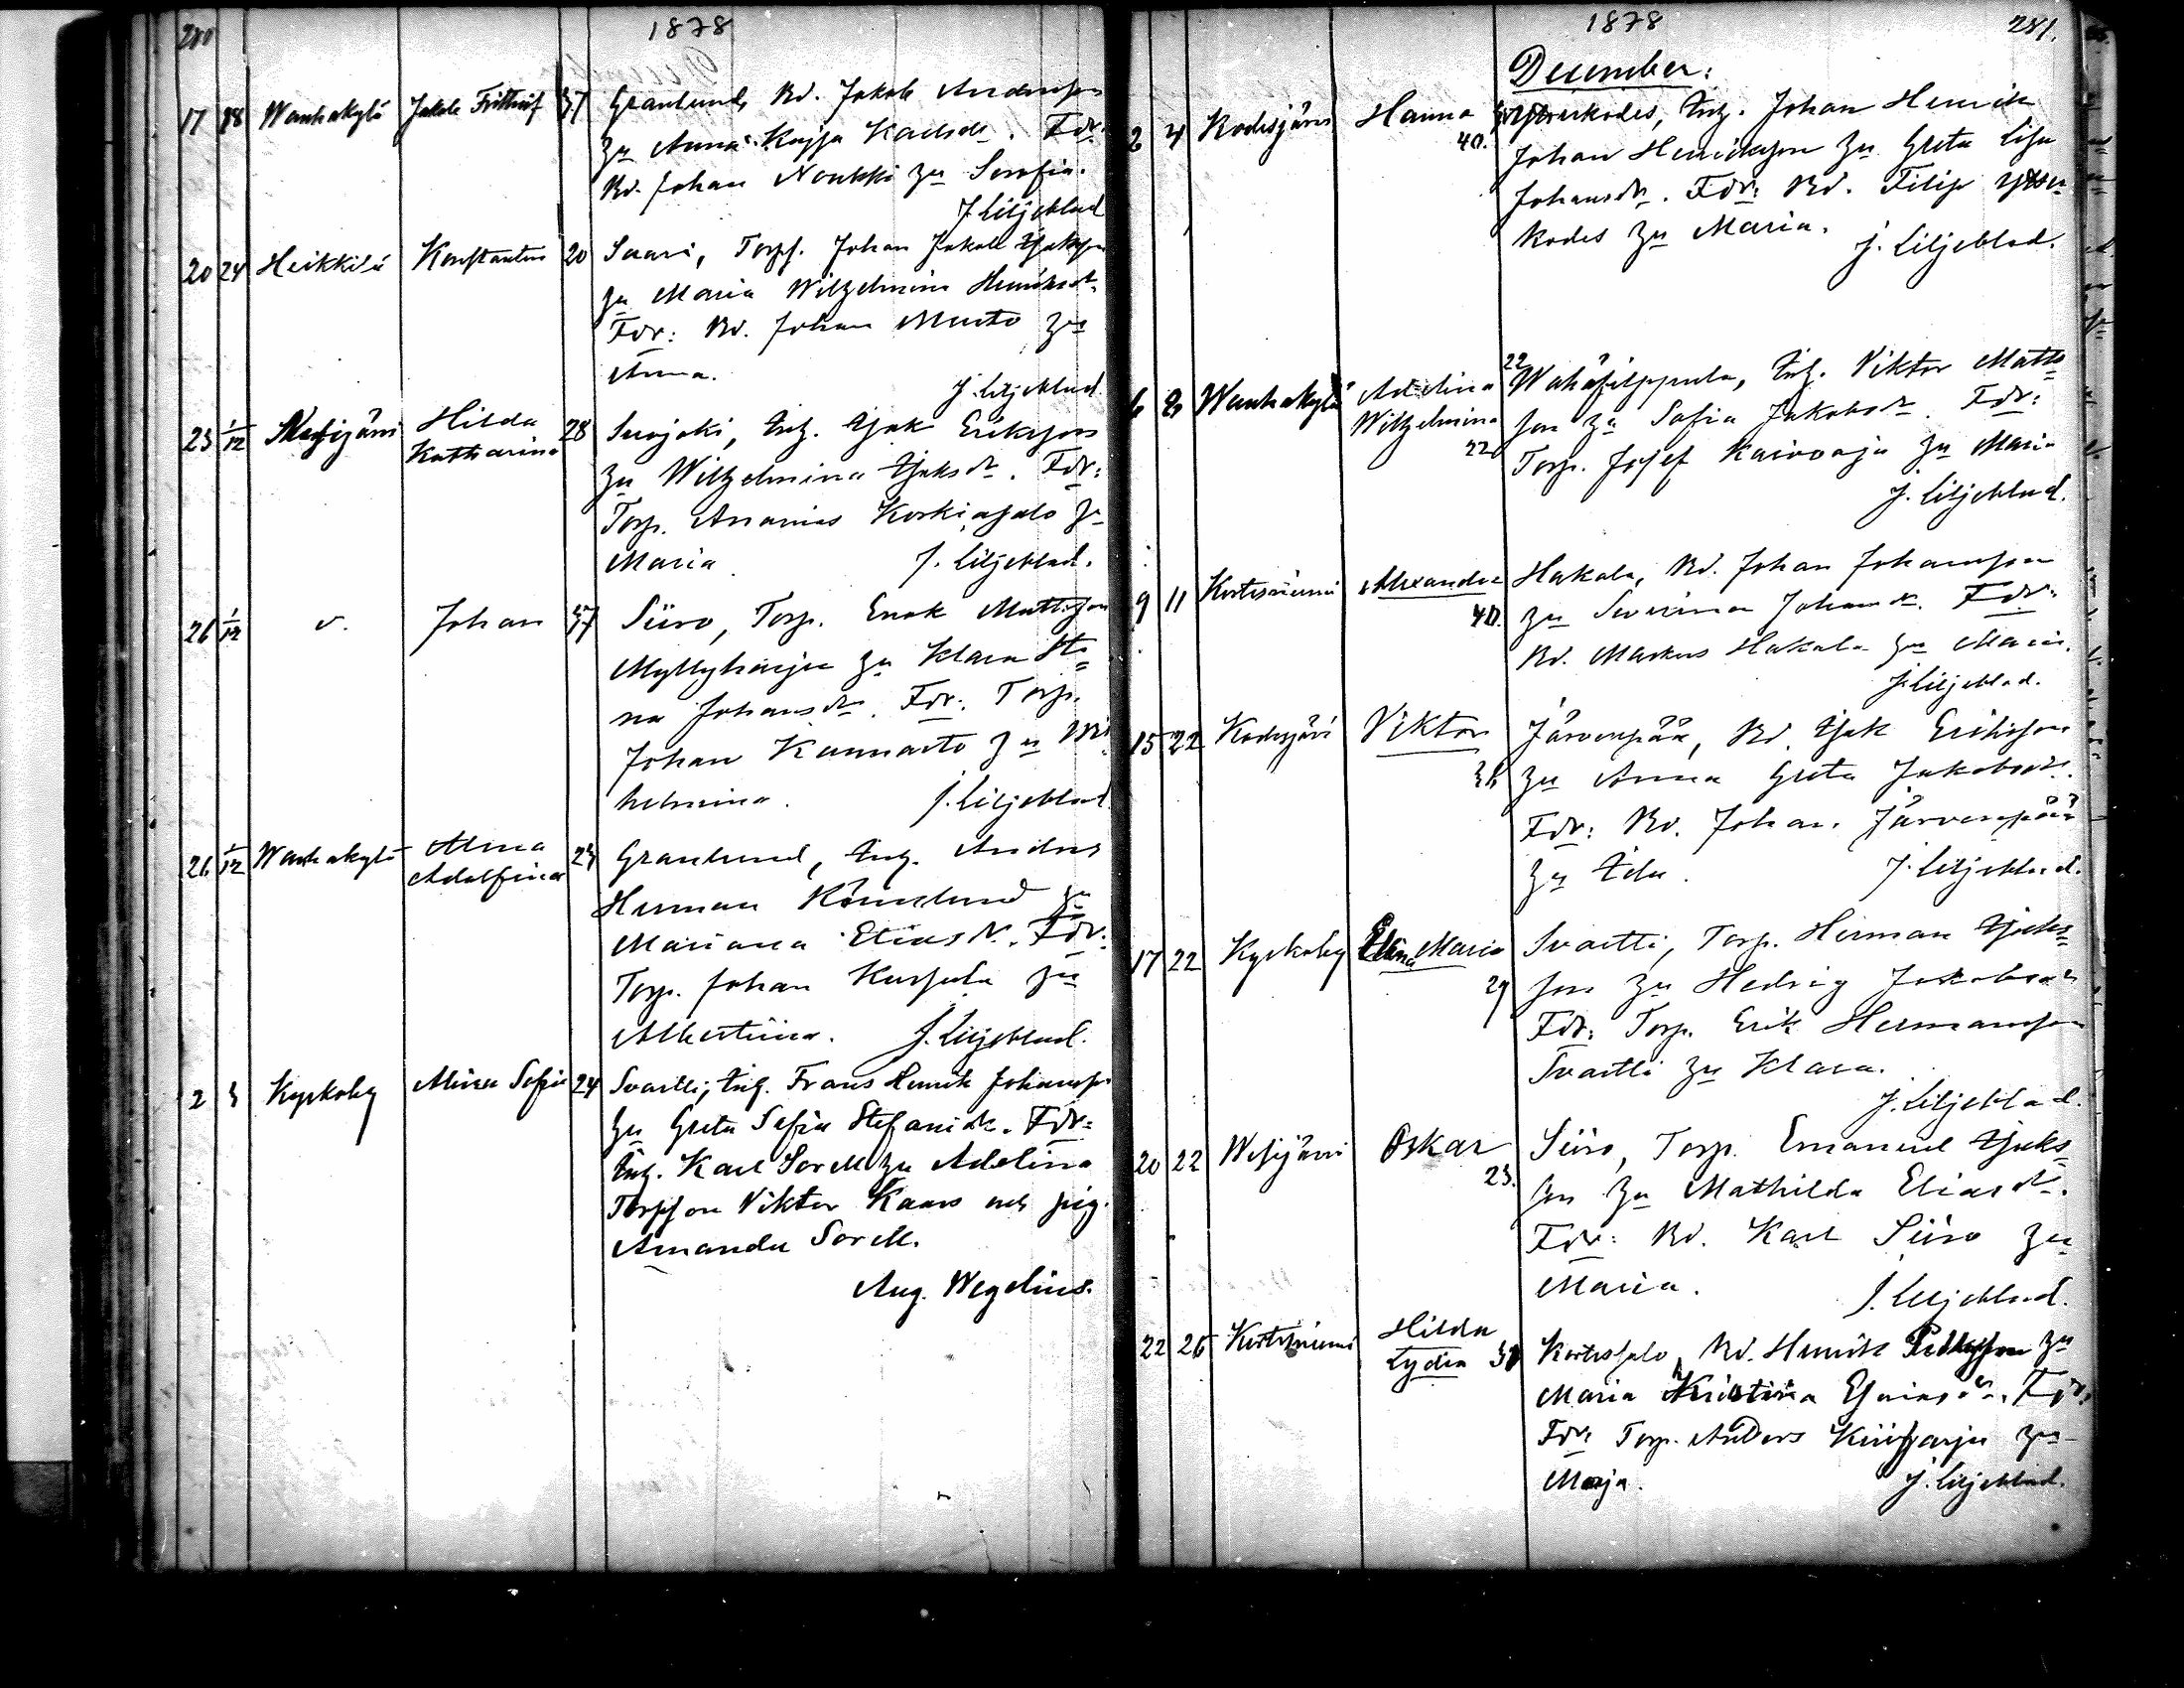 280
1878
17 18 Wanhakylä Jakob Frithiof 37 Granlund, Bd. Jakob Andersson
hu Anna Kajsa Karlsdr. Fdr:
Bd. Johan Noukki hu Serafia.
J. Liljeblad
20 24 Heikkilä Konstantin 20 Saari, Torps. Johan Jakob Isaksson
hu Maria Wilhelmina Henriksdr.
Fdr: Bd. Johan Musto hu
Anna.
J. Liljeblad.
23 1/12 Wesijärvi Hilda
Katharina 28 Suojoki, Inh. Isak Eriksson
hu Wilhelmina Isaksdr. Fdr:
Torp. Ananias Korkiasalo hu
Maria J. Liljeblad.
26 1/12 v. Johan 37 Siiro, Torp. Enok Mattsson
Myllyharju hu Klara Sti=
na Johansdr. Fdr: Torp.
Johan Kannasto hu Wil
helmina. J. Liljeblad
26 1/12 Wanhakylä Alma
Adolfina 23 Granlund, Inh. Anders
Herman Könnlund hu
Mariana Eliasdr. Fdr:
Torp. Johan Kurjula hu
Albertina. J. Liljeblad.
2 3 Kyrkoby Alina Sofia 24 Svartti, Inh. Frans Henrik Johansson
hu Greta Sofia Stefansdr. Fdr:
Inh. Karl Sorell hu Adelina
Torpson Viktor Kaars och pig.
Amanda Sorell.
Aug. Wegelius.
1878
281.
December:
2 4 Kodesjärvi Hanna
40. Yttterkodes, Inh. Johan Henrik
Johan Henriksson hu Greta Lisa
Johansdr. Fdr: Bd. Filip Ytter
kodes hu Maria. J. Liljeblad.
6 8 Wanhakylä Adelina
Wilhelmina
22 Wähäfilppula, Inh. Viktor Matts
son hu Sofia Jakobsdr. Fdr:
Torp. Josef Kaivooja hu Maria
J. Liljeblad.
9 11 Kortesniemi Alexander
40. Hakala, Bd. Johan Johansson
hu Severina Johansdr. Fdr:
Bd. Markus Hakala hu Maria.
J. Liljeblad.
15 22 Kodesjärvi Viktor
36 Järvenpää, Bd. Isak Eriksson
hu Anna Greta Jakobsdr.
Fdr: Bd. Johan Järvenpää
hu Ida. J. Liljeblad.
17 22 Kyrkoby Elina Maria
29 Svartti, Torp. Herman Isaks=
son hu Hedvig Jakobsdr
Fdr: Torp. Erik Hermansson
Svartti hu Klara.
J. Liljeblad.
20 22 Wesijärvi Oskar
23. Siiro, Torp. Emanuel Isaks=
son hu Mathilda Eliasdr.
Fdr: Bd. Karl Siiro hu
Maria. J. Liljeblad.
22 26 Kortesniemi Hilda
Lydia Kortessalo, Bd. Henrik hu
Maria Kristina Esaiasdr. Fdr:
Fdr: Torp. Anders Kiviharju hu
Maja. J. Liljeblad.